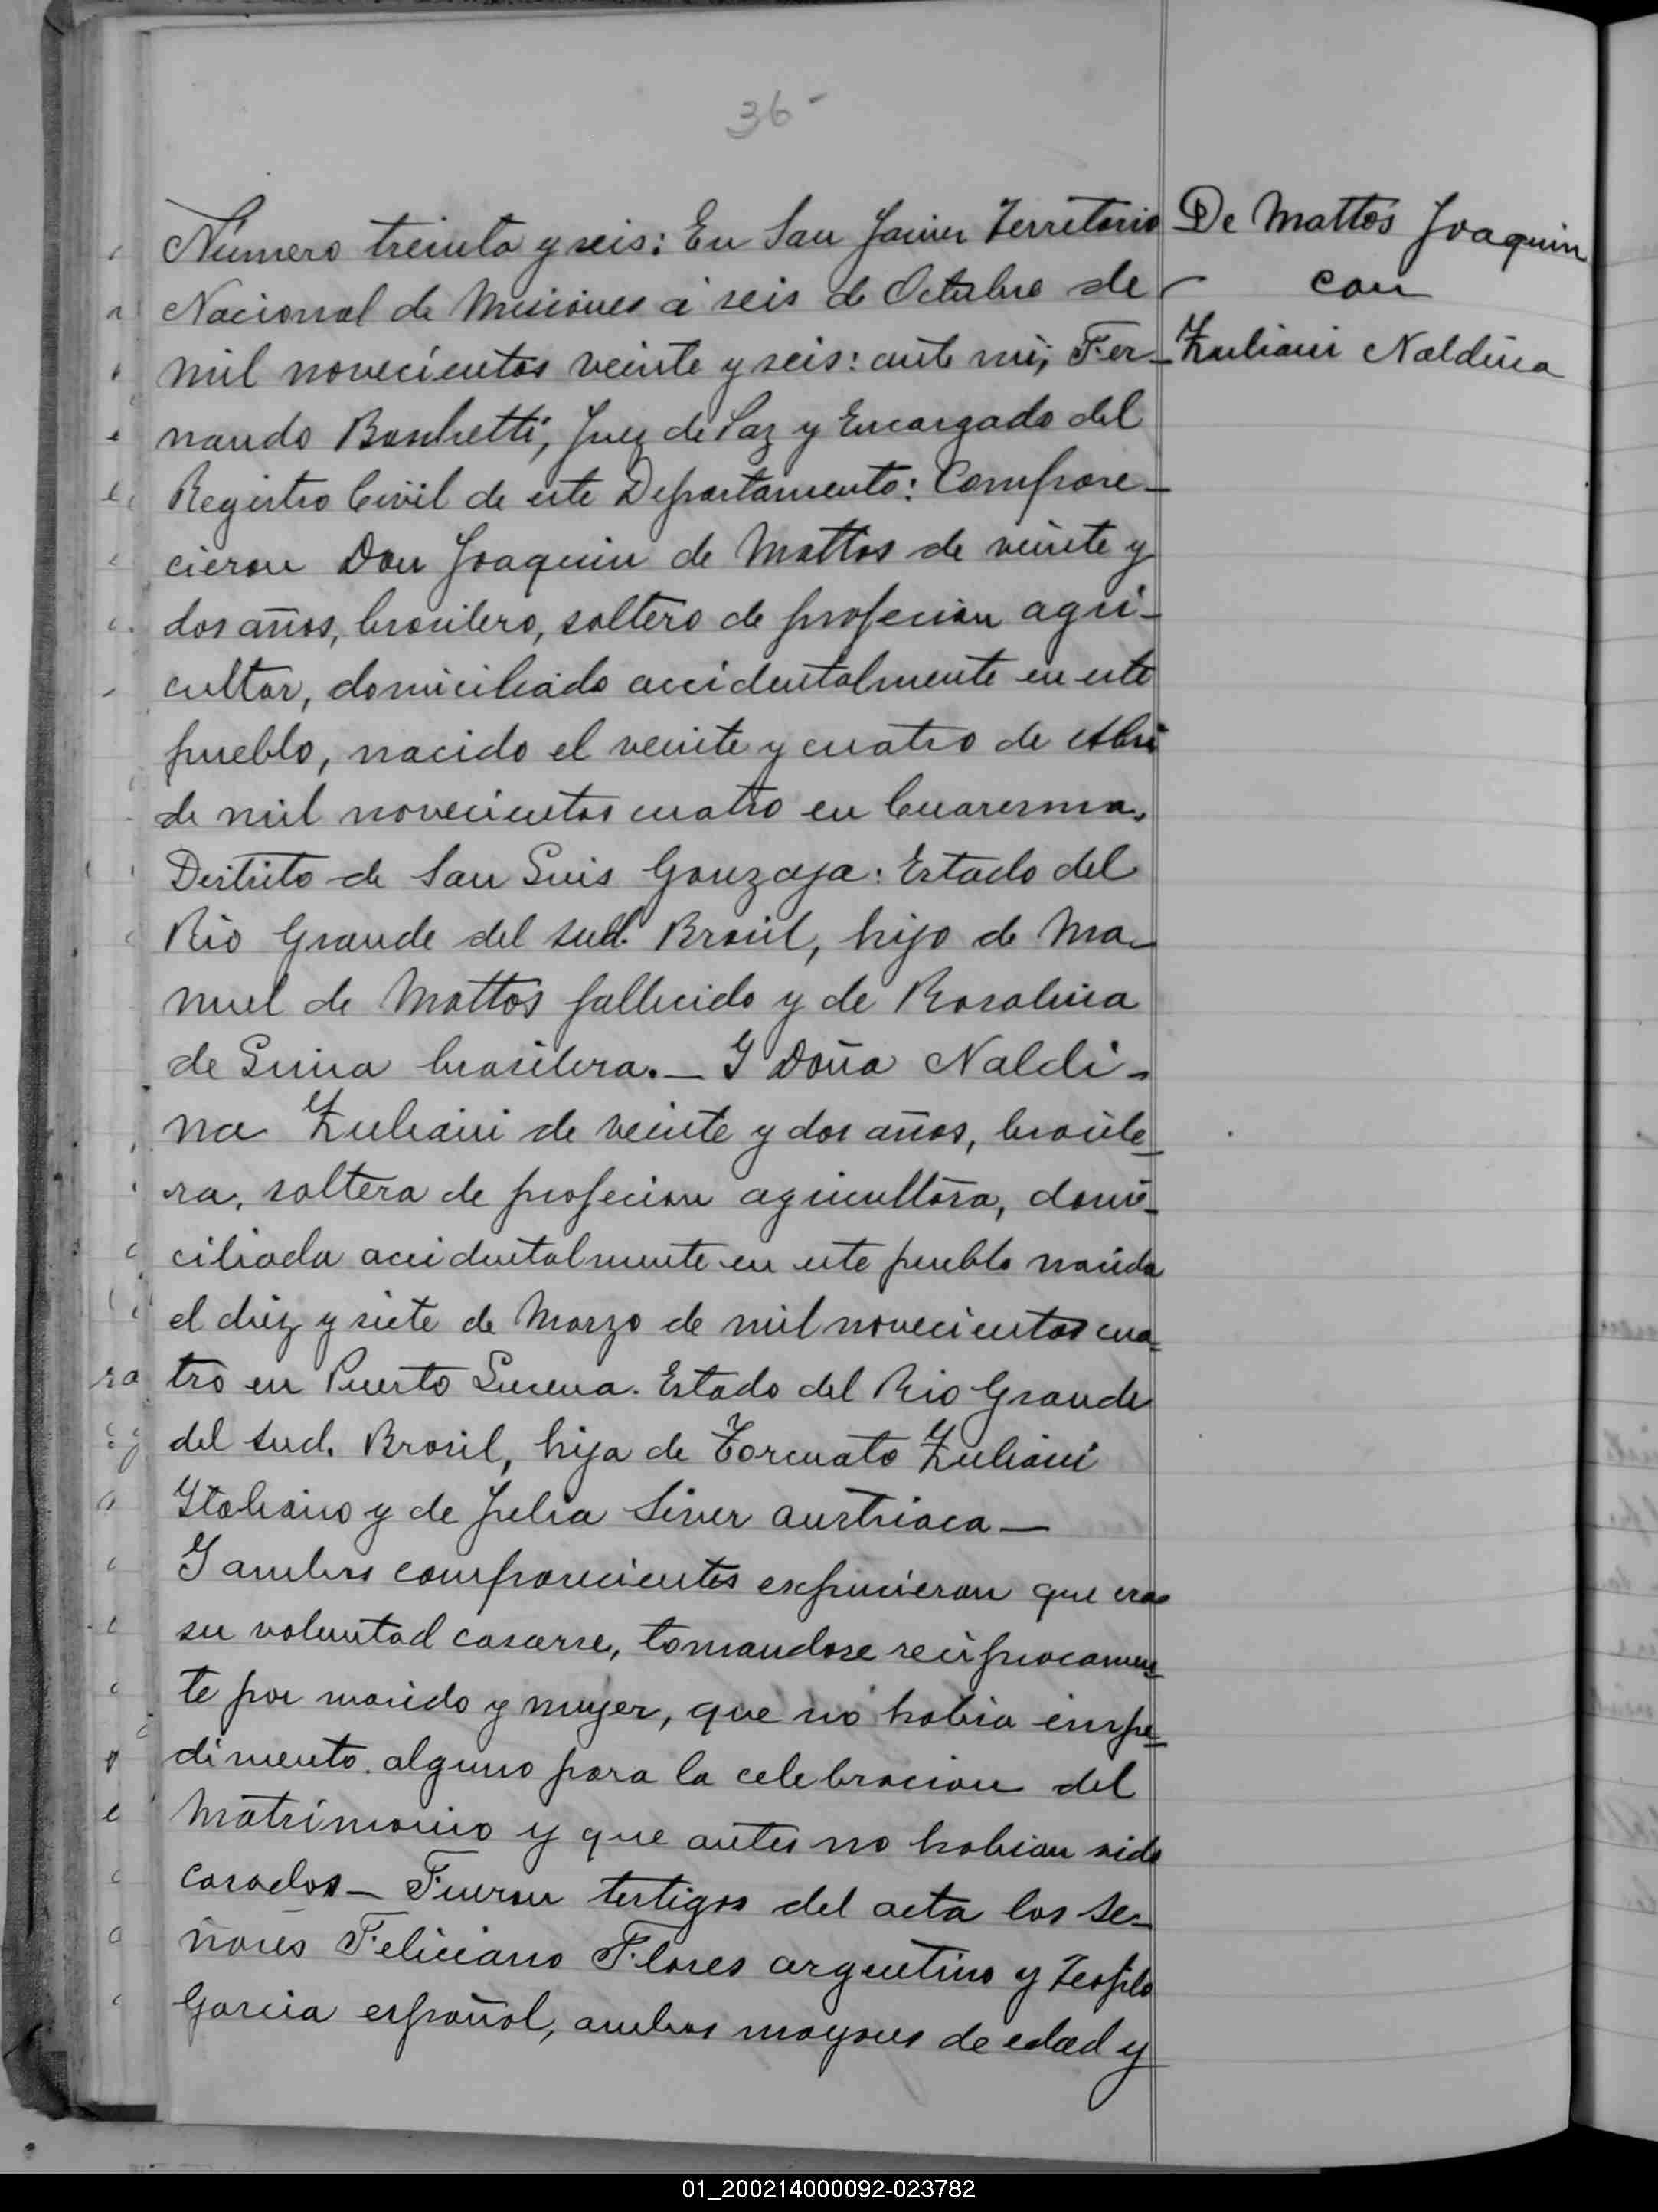 36-
Número treinta y seis: En San Javier Territorio
Nacional de Misiones á seis de Octubre de
mil novecientos veinte y seis: ante mi, Fer-
nando Boschetti, Juez de Paz y Encargado del
Registro Civil de este Departamento: Compare-
cieron Don Joaquin de Mattos de veinte y
dos años, brasilero, soltero de profecion agri-
cultor, domiciliado accidentalmente en este
pueblo, nacido el veinte y cuatro de Abri
de mil novecientos cuatro en Cuaresma,
Distrito de San Luis Gonzaga: Estado del
Rio Grande del Sud. Brasil, hijo de Ma-
nuel de Mattos fallecido y de Rosalina
de Lima brasilera.— Y Doña Naldi-
na Zuliani de veinte y dos años, brasile-
ra, soltera de profecion agricultora, domi-
ciliada accidentalmente en este pueblo nacida
el diez y siete de Marzo de mil novecientos cua-
tro en Puerto Lucena. Estado del Rio Grande
del Sud. Brasil, hija de Torcuato Zuliani
Italiano y de Julia austriaca—
Y ambos comparecientes expucieron que era
su voluntad casarse, tomandose reciprocamen-
te por marido y mujer, que no habia impe-
dimento alguno para la celebracion del
Matrimonio y que antes no habian sido
casados— Fueron testigos del acta los Se-
ñores Feliciano Flores argentino y Teofilo
Garcia español, ambos mayores de edad y
De Mattos Joaquin
con
Zuliani Naldina
01_200214000092-023782